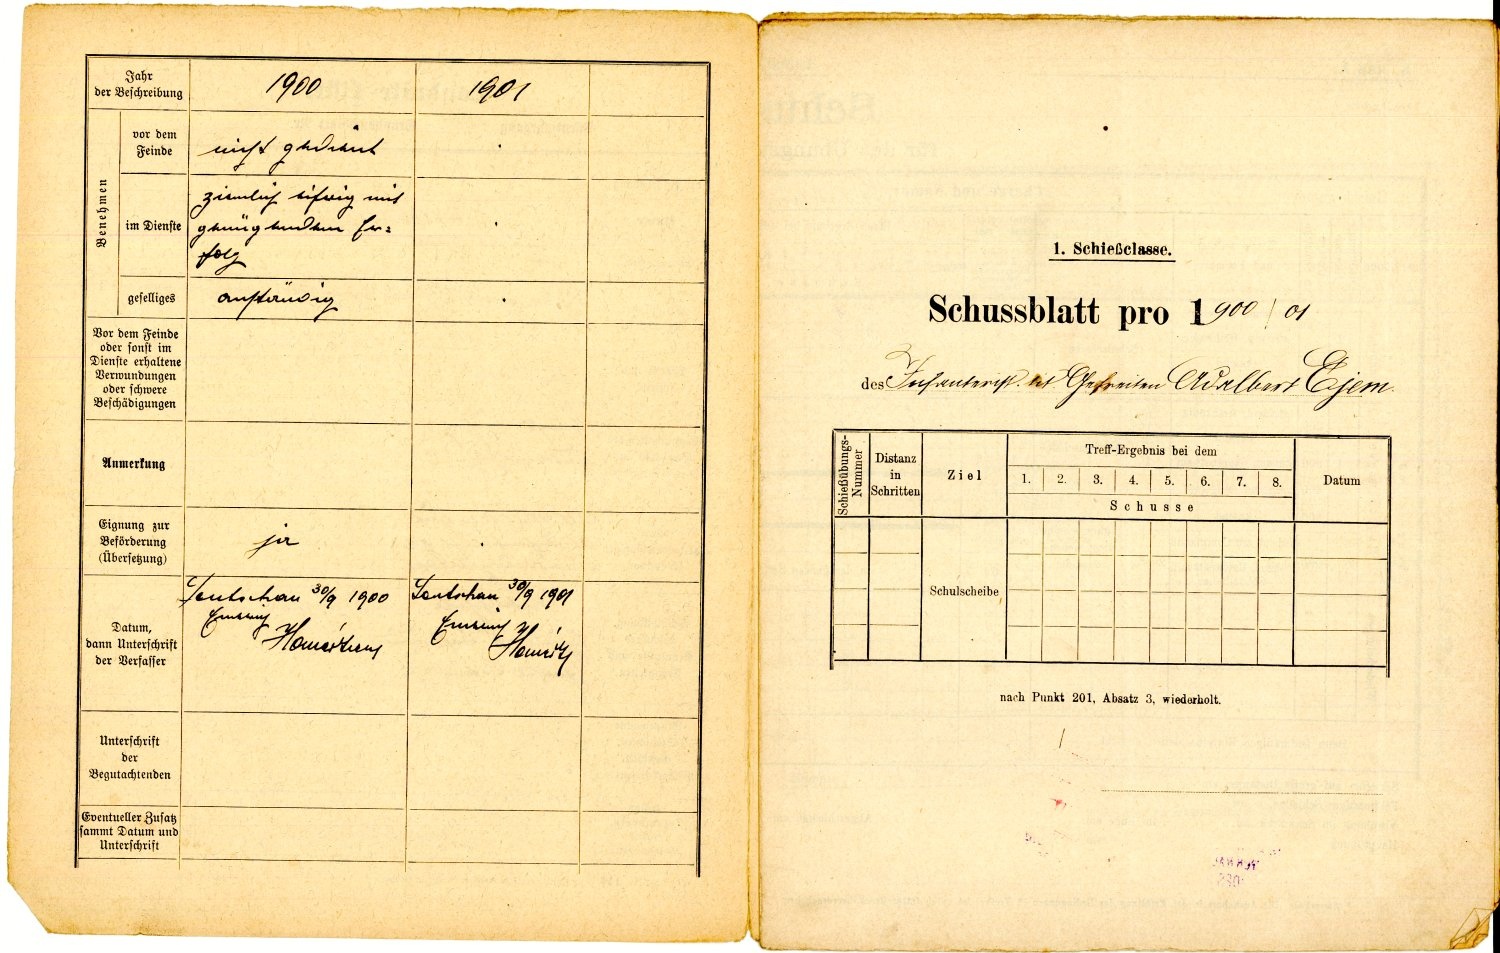 Jahr
der Beschreibung
1900
1901
Benehmen
vor dem
Feinde
nicht gedient
im Dienste
ziemlich eifrig mit
genügendem Er=
folg
geselliges
anständig
Vor dem Feinde
oder sonst im
Dienste erhaltene
Verwundungen
oder schwere
Beschädigungen
Anmerkung
Eignung zur
Beförderung
(Übersetzung)
ja
Datum,
dann Unterschrift
der Verfasser
Leutschau 30/9 1900
Leutschau 30/9 1901
Unterschrift
der
Begutachtenden
Eventueller Zusatz
sammt Datum und
Unterschrift
1. Schießclasse.
Schussblatt pro 1900/01
des Infanterist tit. Gefreiten Adalbert Ejem.
Schießübungs-
Nummer
Distanz
in
Schritten
Ziel
Treff-Ergebnis bei dem
1. 2. 3. 4. 5. 6. 7. 8.
Schusse
Datum
Schulscheibe
nach Punkt 201, Absatz 3, wiederholt.